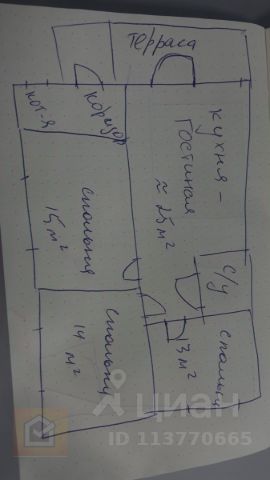 терраса
кот-я
коридор
кухня –
гостиная
≈ 25 м²
спальня
15 м²
с/у
спальня
14 м²
спальня
13 м²
циан
ID 113770665